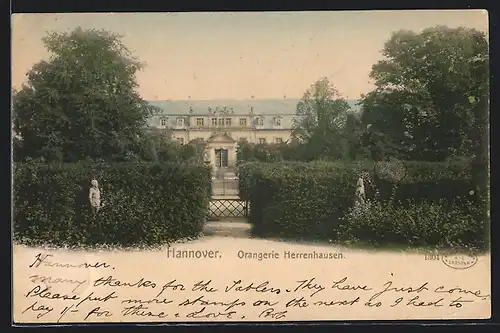 Hannover. Orangerie Herrenhausen.
1301
DRESDEN
Hannover.
many thanks for the Tablers. They have just come.
Please put more stamps on the next as I had to
pay 1/- for these. Love.